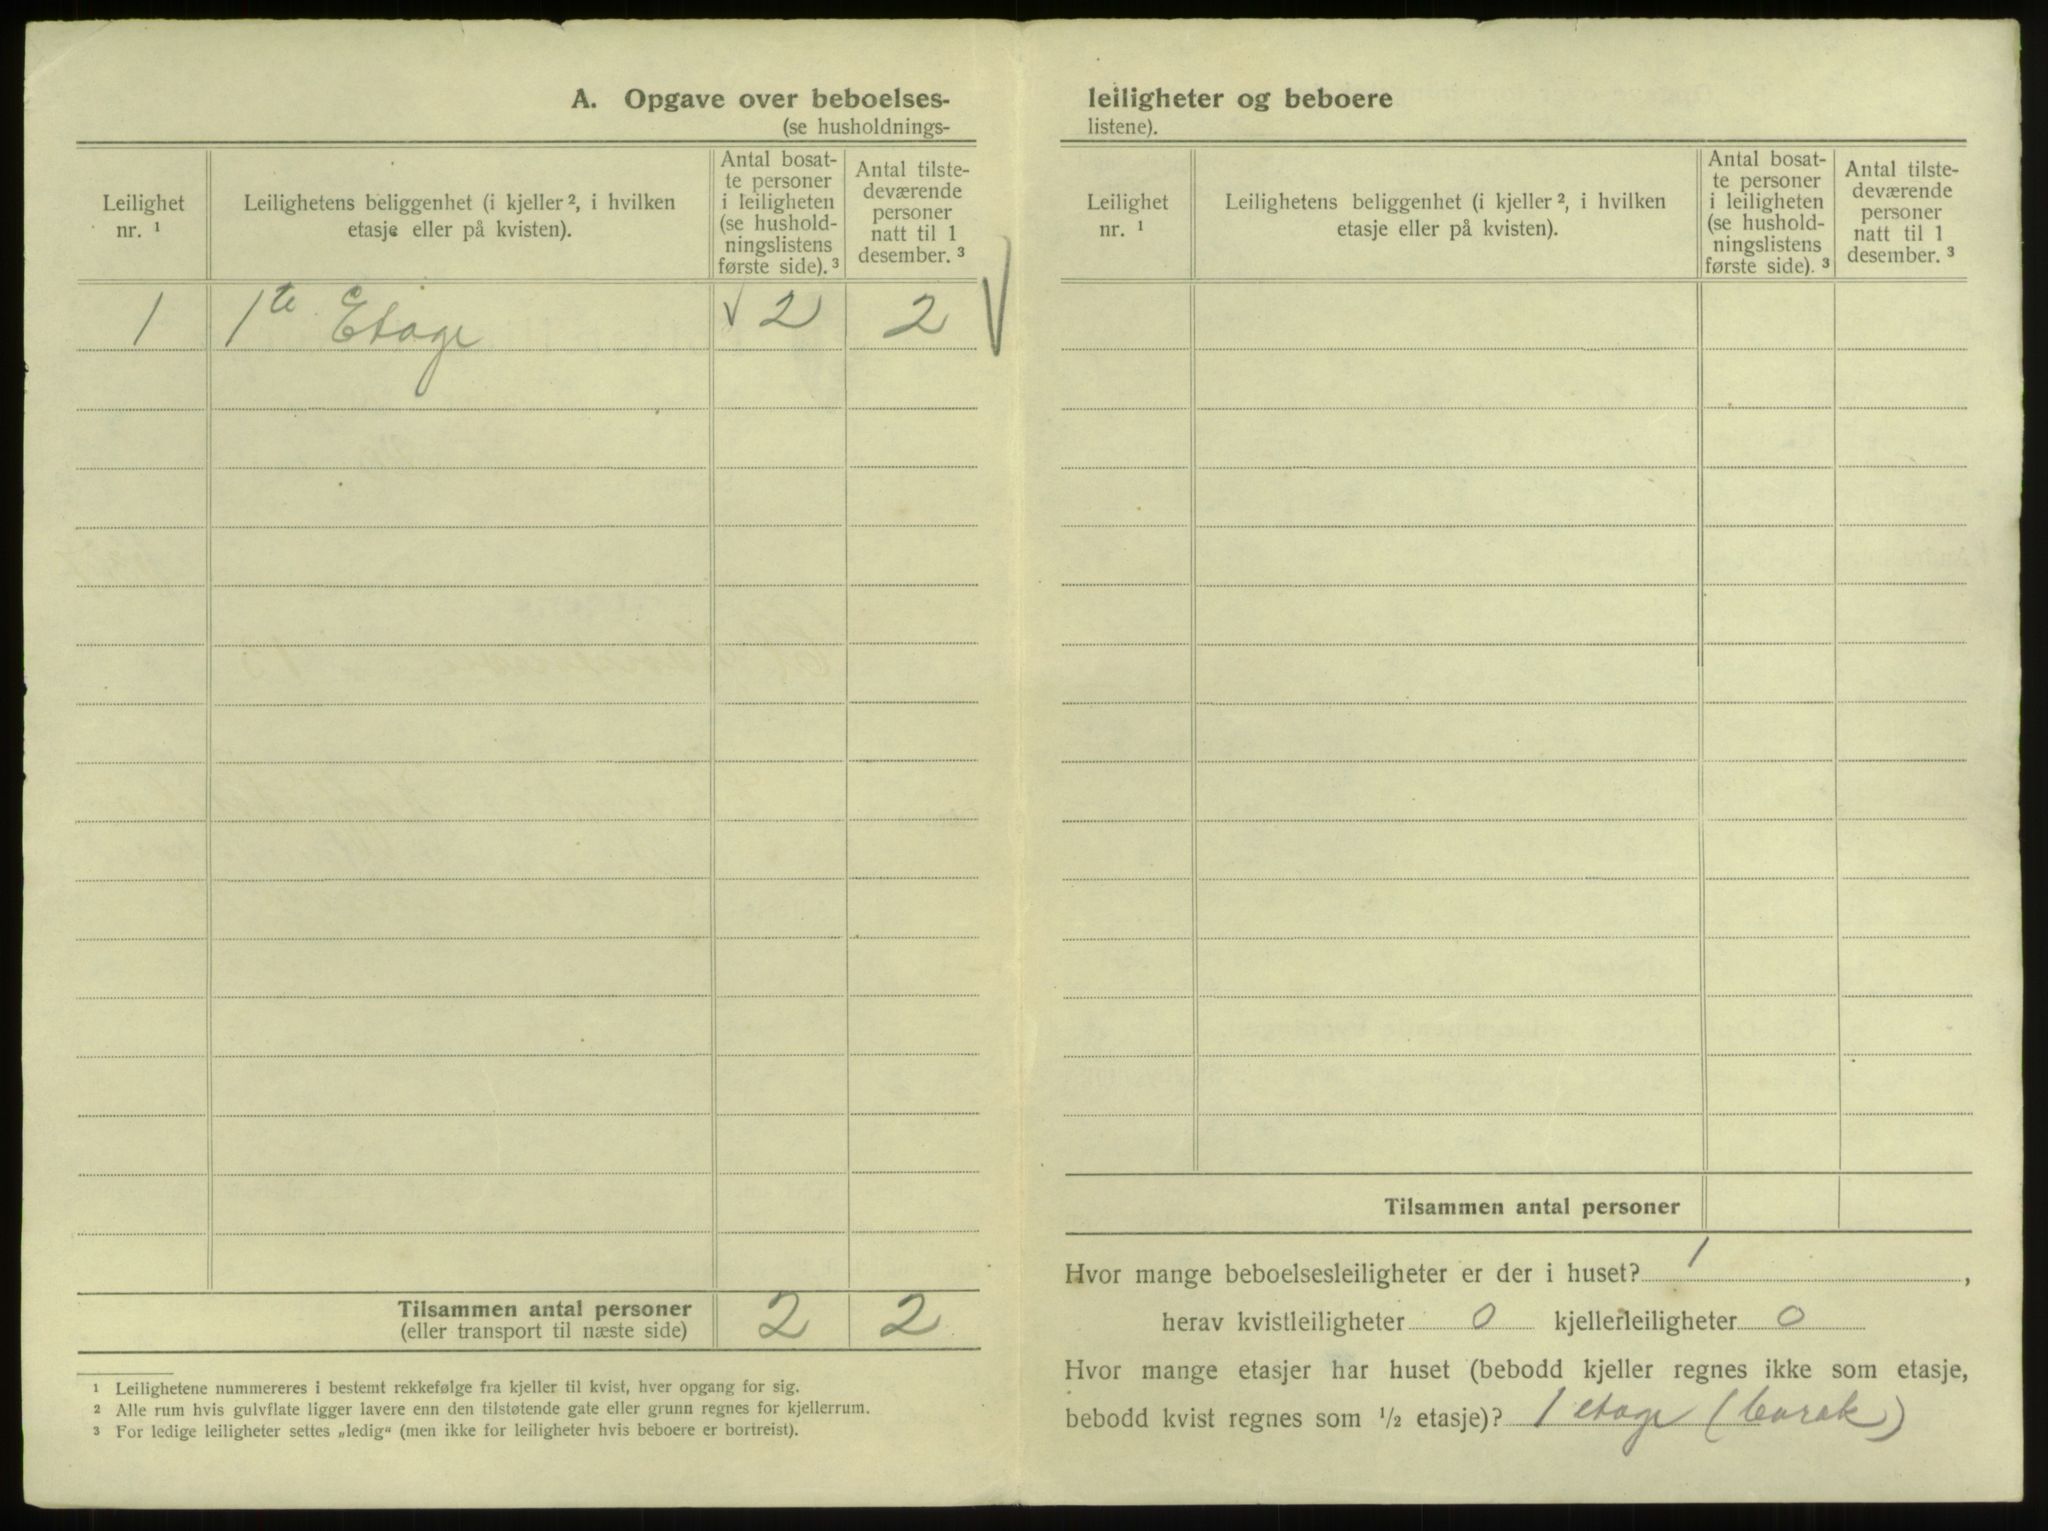 A. Opgave over beboelses-
(se husholdnings-
Leilighet
nr. ¹
Leilighetens beliggenhet (i kjeller ², i hvilken
etasje eller på kvisten).
Antal bosat-
te personer
i leiligheten
(se hushold-
ningslistens
første side). ³
Antal tilste-
deværende
personer
natt til 1
desember. ³
1 1te Etage √ 2 2 √
Tilsammen antal personer 2 2
(eller transport til næste side)
¹ Leilighetene nummereres i bestemt rekkefølge fra kjeller til kvist, hver opgang for sig.
² Alle rum hvis gulvflate ligger lavere enn den tilstøtende gate eller grunn regnes for kjellerrum.
³ For ledige leiligheter settes „ledig“ (men ikke for leiligheter hvis beboere er bortreist).
leiligheter og beboere
listene).
Leilighet
nr. ¹
Leilighetens beliggenhet (i kjeller ², i hvilken
etasje eller på kvisten).
Antal bosat-
te personer
i leiligheten
(se hushold-
ningslistens
første side). ³
Antal tilste-
deværende
personer
natt til 1
desember. ³
Tilsammen antal personer
Hvor mange beboelsesleiligheter er der i huset? 1 ,
herav kvistleiligheter 0 kjellerleiligheter 0
Hvor mange etasjer har huset (bebodd kjeller regnes ikke som etasje,
bebodd kvist regnes som ½ etasje)? 1 etage (barak)